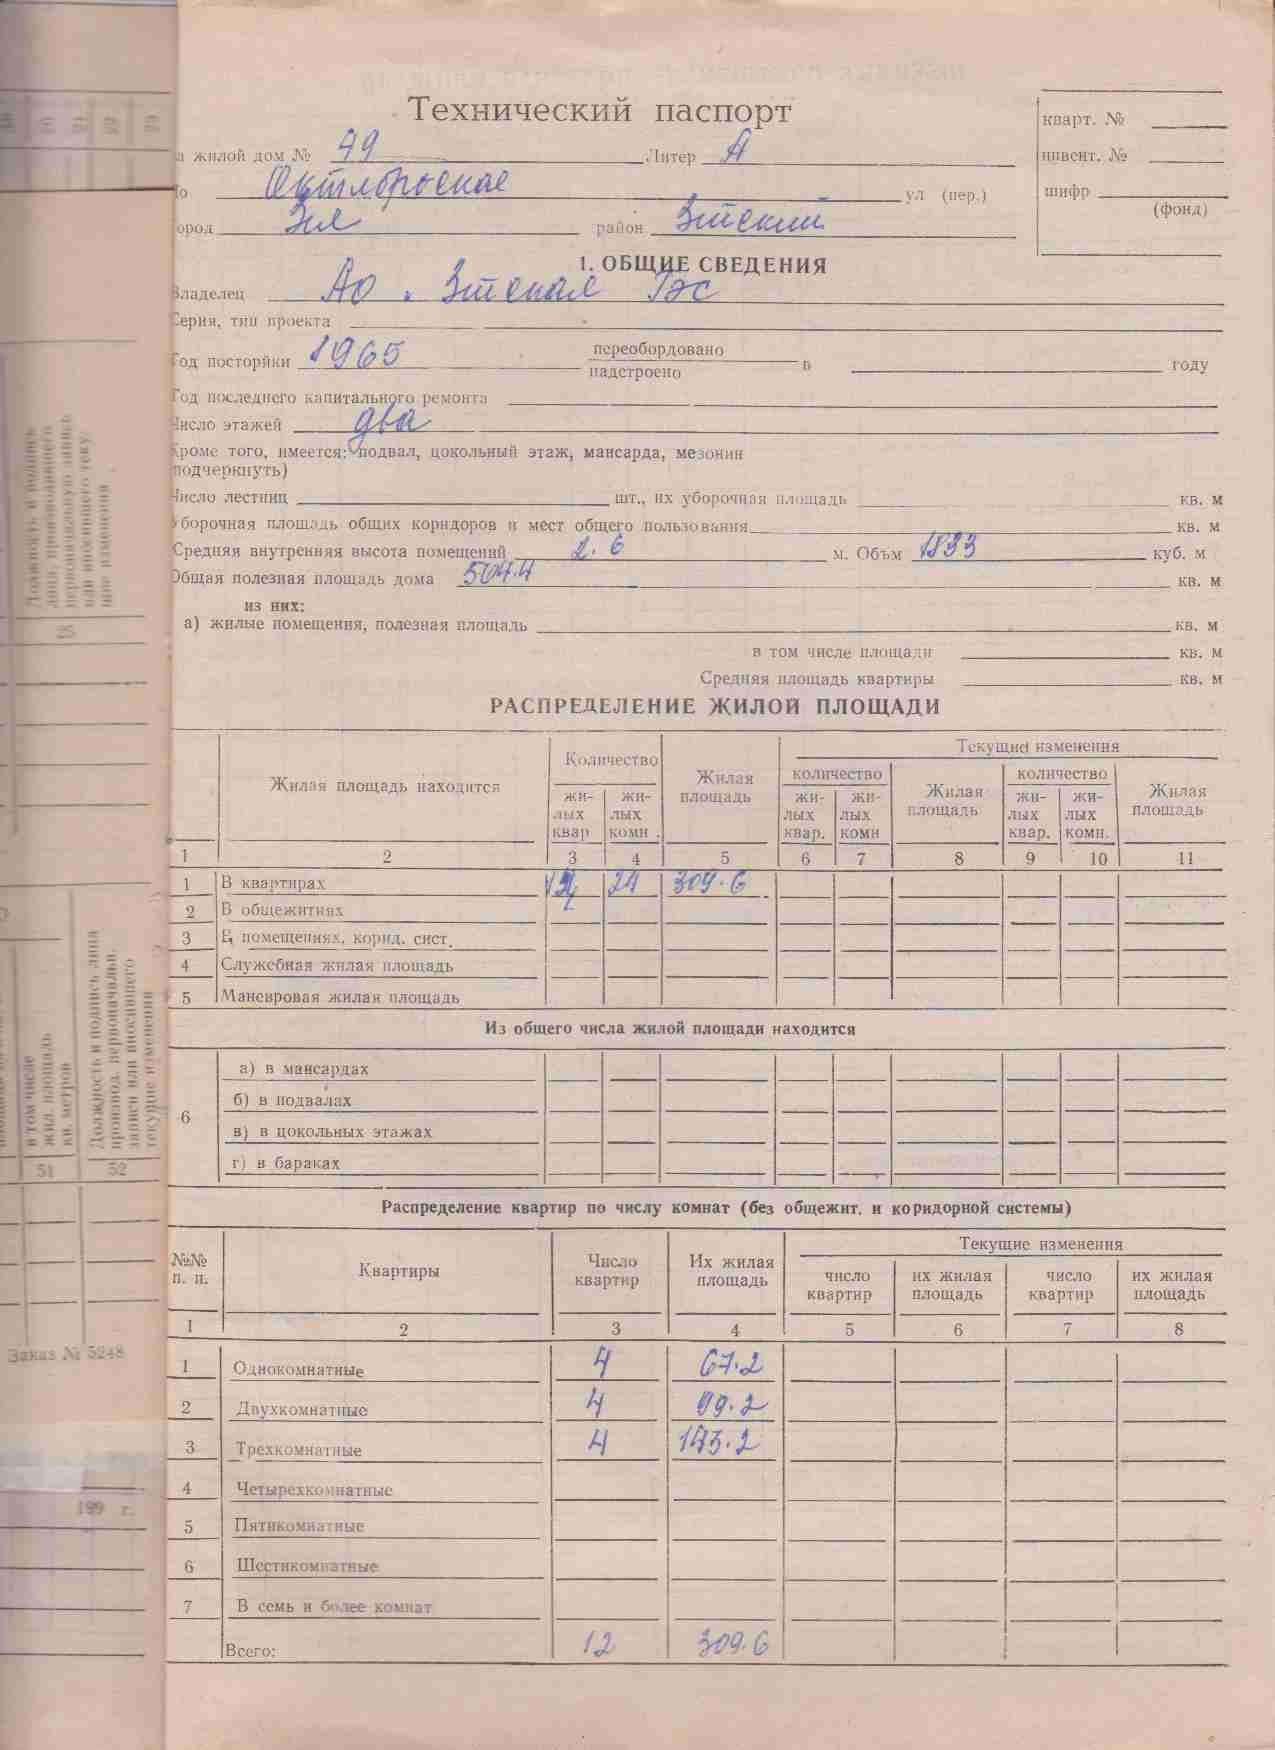 Технический паспорт
кварт. №
на жилой дом № 49 Литер А
инвент. №
по Октябрьская ул (пер.)
шифр
(фонд)
город Зея район Зейский
1. ОБЩИЕ СВЕДЕНИЯ
Владелец АО "Зейская ГЭС
Серия, тип проекта
Год посторйки 1965 переобордовано
надстроено в году
Год последнего капитального ремонта
Число этажей два
Кроме того, имеется: подвал, цокольный этаж, мансарда, мезонин
(подчеркнуть)
Число лестниц шт., их уборочная площадь кв. м
Уборочная площадь общих коридоров и мест общего пользования кв. м
Средняя внутренняя высота помещений 2.6 м. Объм 1833 куб. м
Общая полезная площадь дома 504.4 кв. м
из них:
а) жилые помещения, полезная площадь кв. м
в том числе площади кв. м
Средняя площадь квартиры кв. м
РАСПРЕДЕЛЕНИЕ ЖИЛОЙ ПЛОЩАДИ
Жилая площадь находится Количество Жилая площадь Текущие изменения
количество Жилая площадь количество Жилая площадь
жи-лых квар жи-лых комн. жи-лых квар. жи-лых комн жи-лых квар. жи-лых комн.
1 2 3 4 5 6 7 8 9 10 11
1 В квартирах 12 24 309.6
2 В общежитиях
3 В помещениях, корид. сист.
4 Служебная жилая площадь
5 Маневровая жилая площадь
Из общего числа жилой площади находится
а) в мансардах
б) в подвалах
6
в) в цокольных этажах
г) в бараках
Распределение квартир по числу комнат (без общежит. и коридорной системы)
№№ п. п. Квартиры Число квартир Их жилая площадь Текущие изменения
число квартир их жилая площадь число квартир их жилая площадь
1 2 3 4 5 6 7 8
1 Однокомнатные 4 67.2
2 Двухкомнатные 4 99.2
3 Трехкомнатные 4 143.2
4 Четырехкомнатные
5 Пятикомнатные
6 Шестикомнатные
7 В семь и более комнат
Всего: 12 309.6
25
в том числе
жил. площадь
кв. метров
Должность и подпись лица
производ. первоначальн.
записи или вносившего
текущие изменения
51 52
Заказ № 5248
199 г.